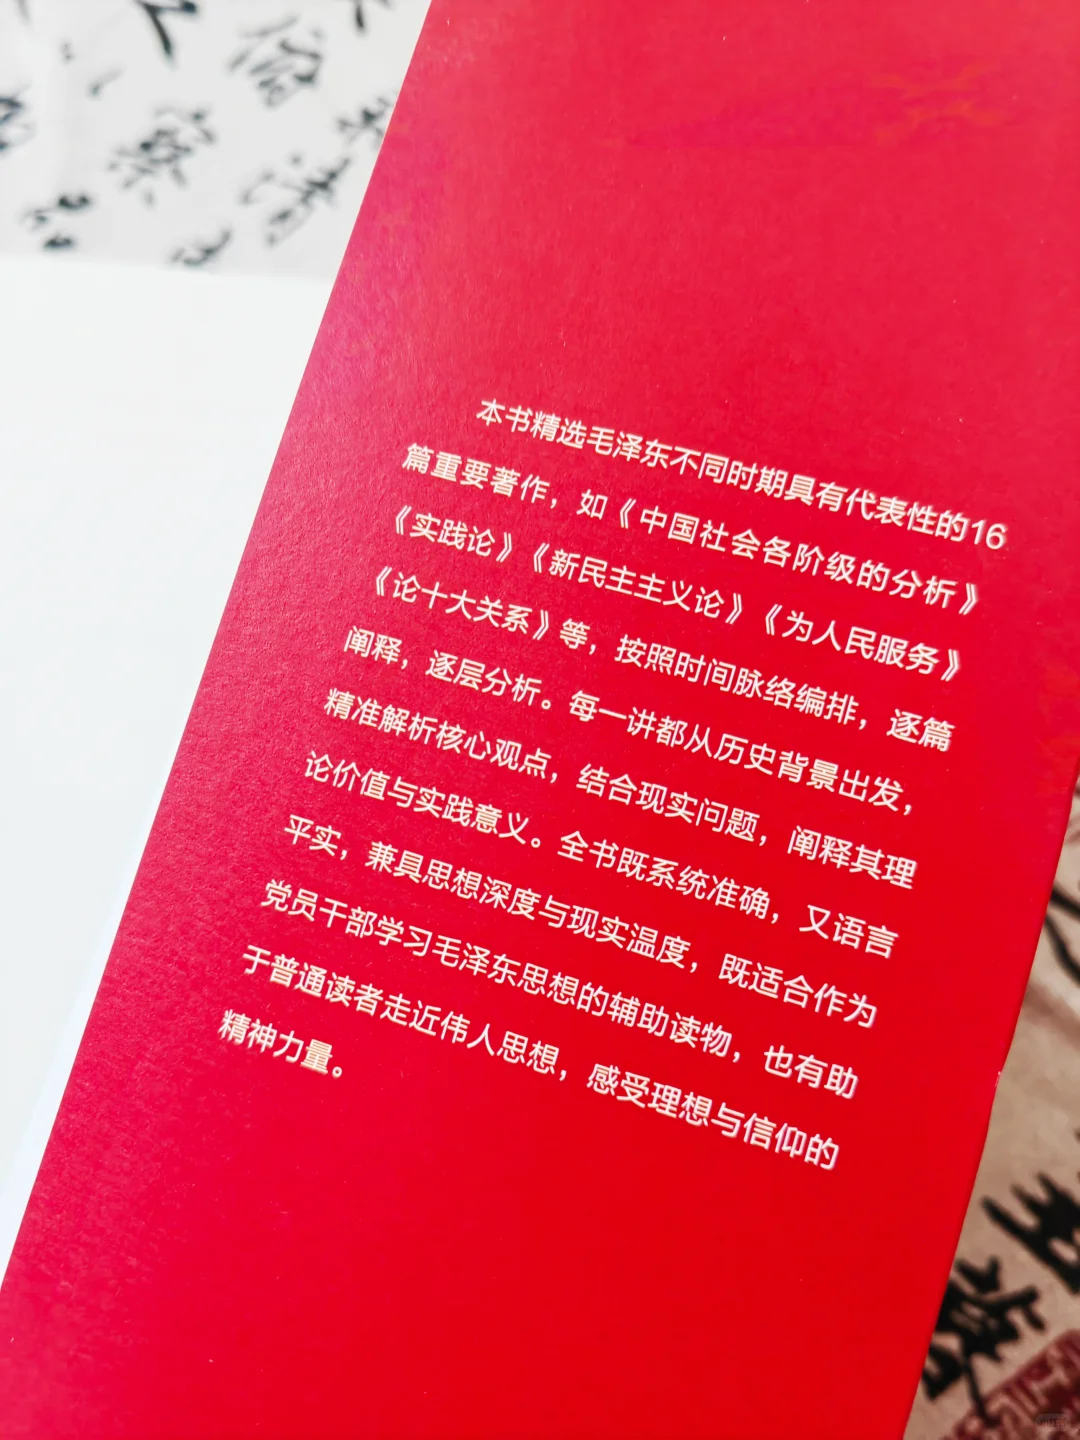 本书精选毛泽东不同时期具有代表性的16
篇重要著作，如《中国社会各阶级的分析》
《实践论》《新民主主义论》《为人民服务》
《论十大关系》等，按照时间脉络编排，逐篇
阐释，逐层分析。每一讲都从历史背景出发，
精准解析核心观点，结合现实问题，阐释其理
论价值与实践意义。全书既系统准确，又语言
平实，兼具思想深度与现实温度，既适合作为
党员干部学习毛泽东思想的辅助读物，也有助
于普通读者走近伟人思想，感受理想与信仰的
精神力量。
察
清